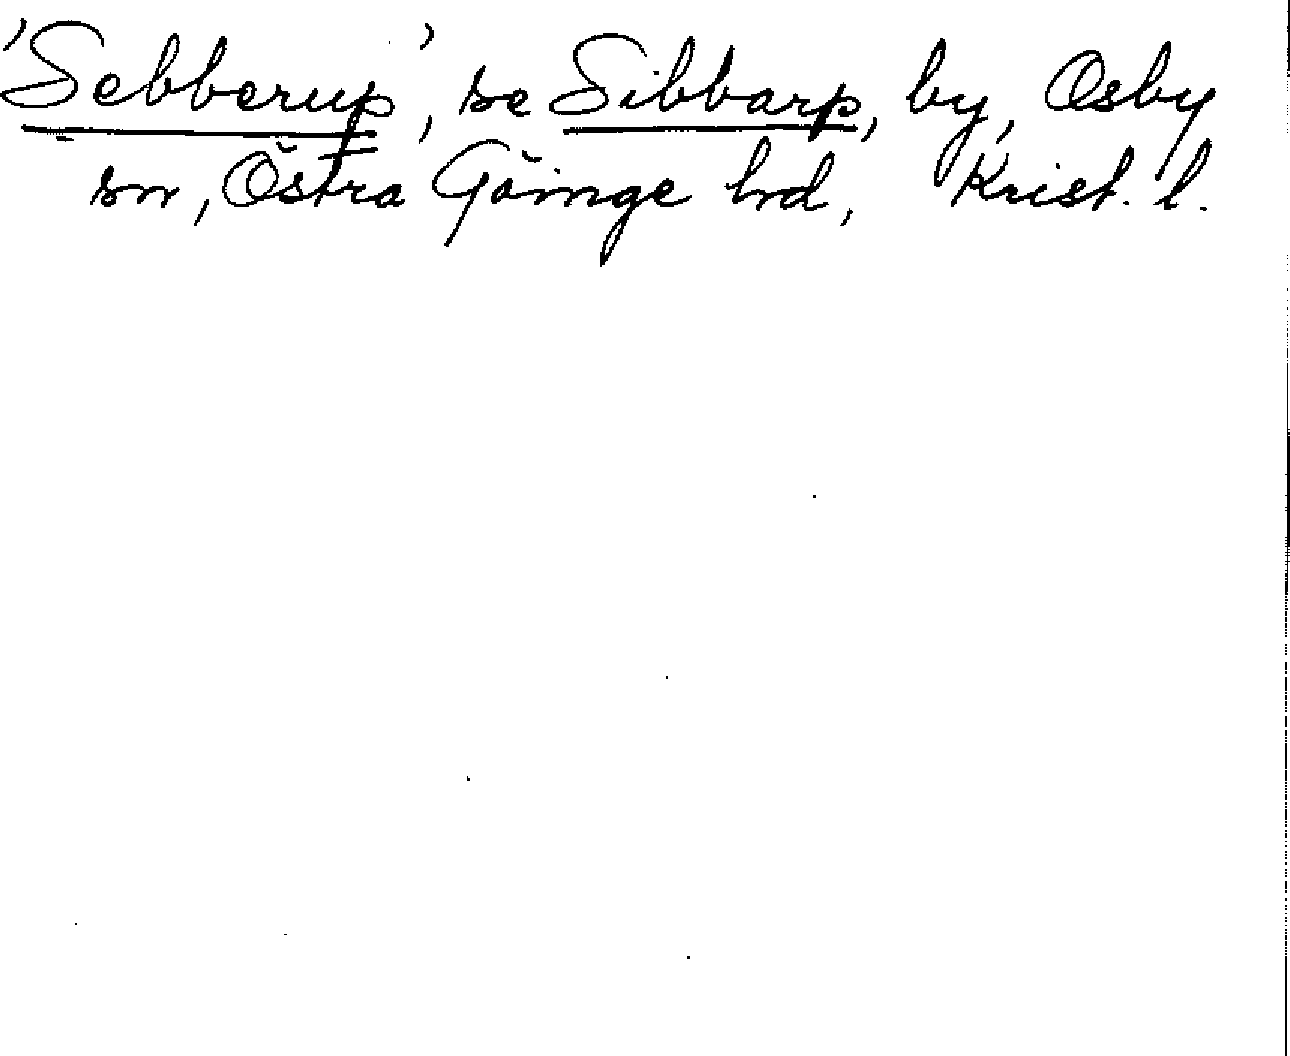 'Sebberup', se Sibbarp, by, Osby
sn, Östra Göinge hd, Krist. l.